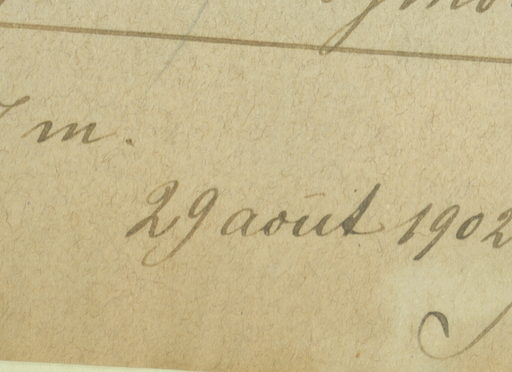 m.
29 août 1902